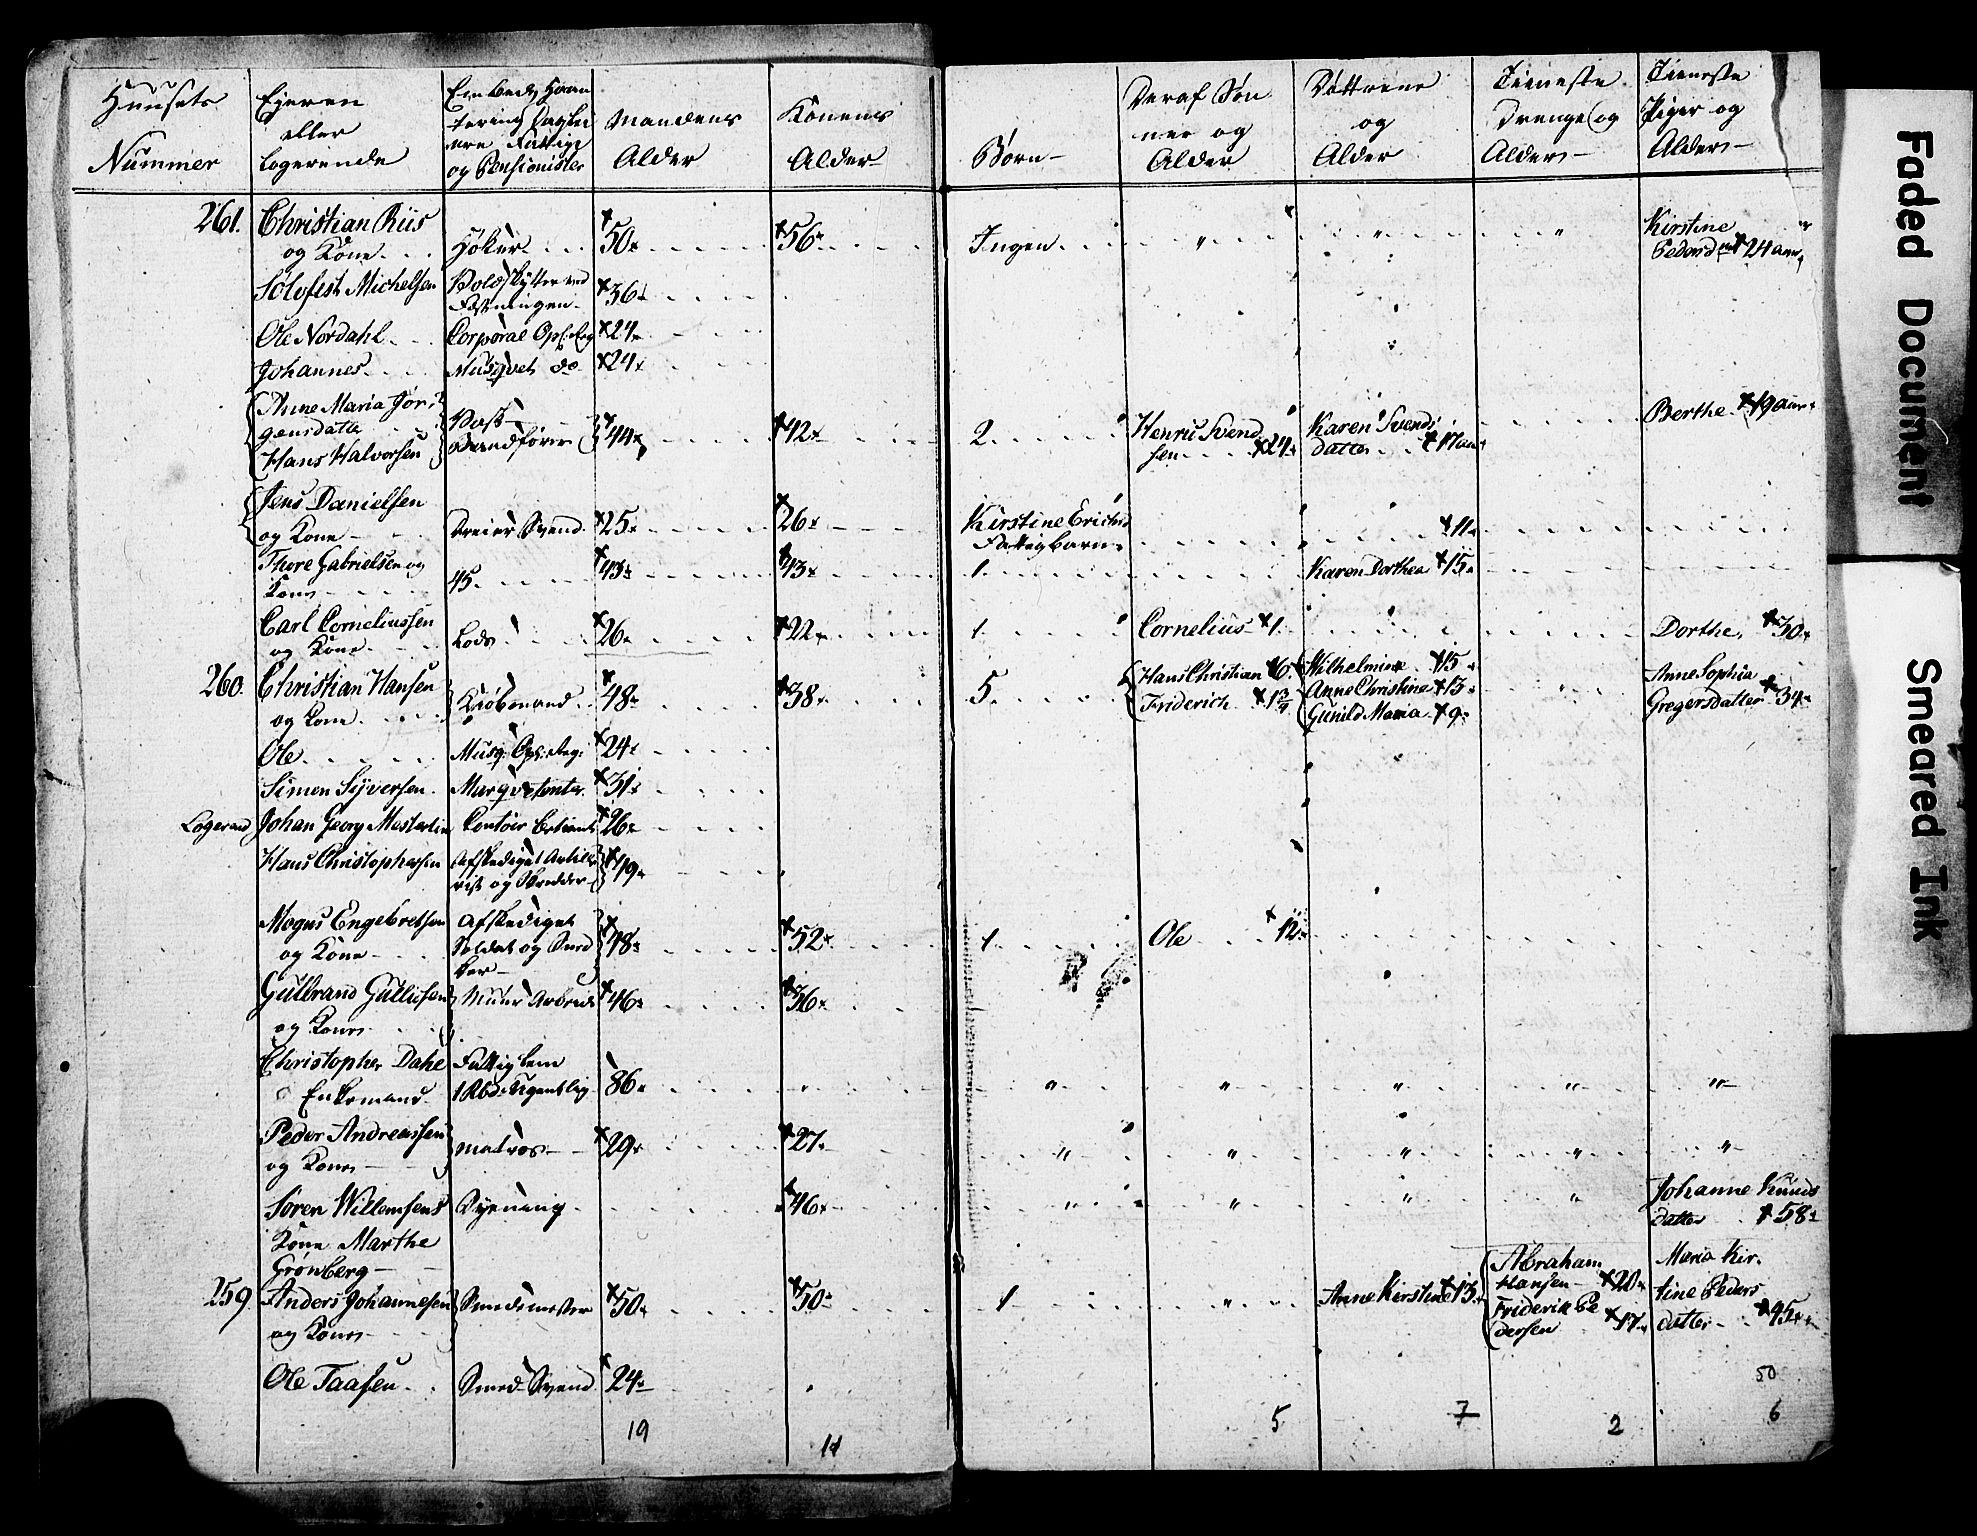 Huusets Nummer
Ejeren eller Logerende
Embeds Haan
tering Daglei
ere Fattige
og Pensionister
Mandens Alder
Konens Alder
Børn
Deraf Søn
ner og
Alder
Døttrene
og
Alder
Tieneste
Drenge og
Alder
Tieneste
Piger og
Alder
261. Christian Riis
og Kone Høker 50 56 Ingen " " " Kirstine
Peders d. 24 aar
Sølvfest Michelsen ved
Fæstningen 36
Ole Nordahl Corporal Opl: Reg 24
Johannes Musqvet do 24
Anne Maria Jør
gensdatter
Hans Halvorsen 44 42 2 Henric Svend
sen 24 Karen Svends
datter 17 aar Berthe 19 aar
Jens Danielsen
og Kone Dreier Svend 25 26 Kirstine Erichsd
Fattigbarn 11
Thore Gabrielsen og
Kone 45 43 43 1 Karen Dorthea 15
Carl Corneliussen
og Kone Lods 26 22 1 Cornelius 1 Dorthe 30
260. Christian Hansen
og Kone Kiøbmand 48 38 5 Hans Christian 6
Friderich 1 3/4 Wilhelmine 15
Anne Christine 13
Gunild Maria 9 " Anne Sophia
Gregersdatter 34
Ole Musq: Opl: Reg: 24
Simen Syversen Marqvetenter 31
Logerend Johan Georg Contoir Betient 26
Hans Christophersen Afskediget Artille
rist og Skredder 49
Mogns Engebretsen
og Kone Afskediget
Soldat og Sned
ker 48 52 1 Ole 12
Gulbrand Gullicksen
og Kone Muur Arbeid 46 36
Christopher Dahl
Enkemand Fattiglem
1 Rbd: Ugentlig 86 " " " " "
Peder Andreassen
og Kone Matros 29 27 " " " " "
Søren Willemsens
Kone Marthe
Grønberg Syening 46 " " " " Johanne Knuds
datter 58
259 Anders Johannesen
og Kone Smedemester 50 50 1 " Anne Kirstine 13 Abraham
Hansen 20
Friderik Pe
dersen 17 Maria Kir
stine Peders
datter 45
Ole Taasen Smed Svend 24
50
19 11 5 7 2 6
Faded Document
Smeared Ink